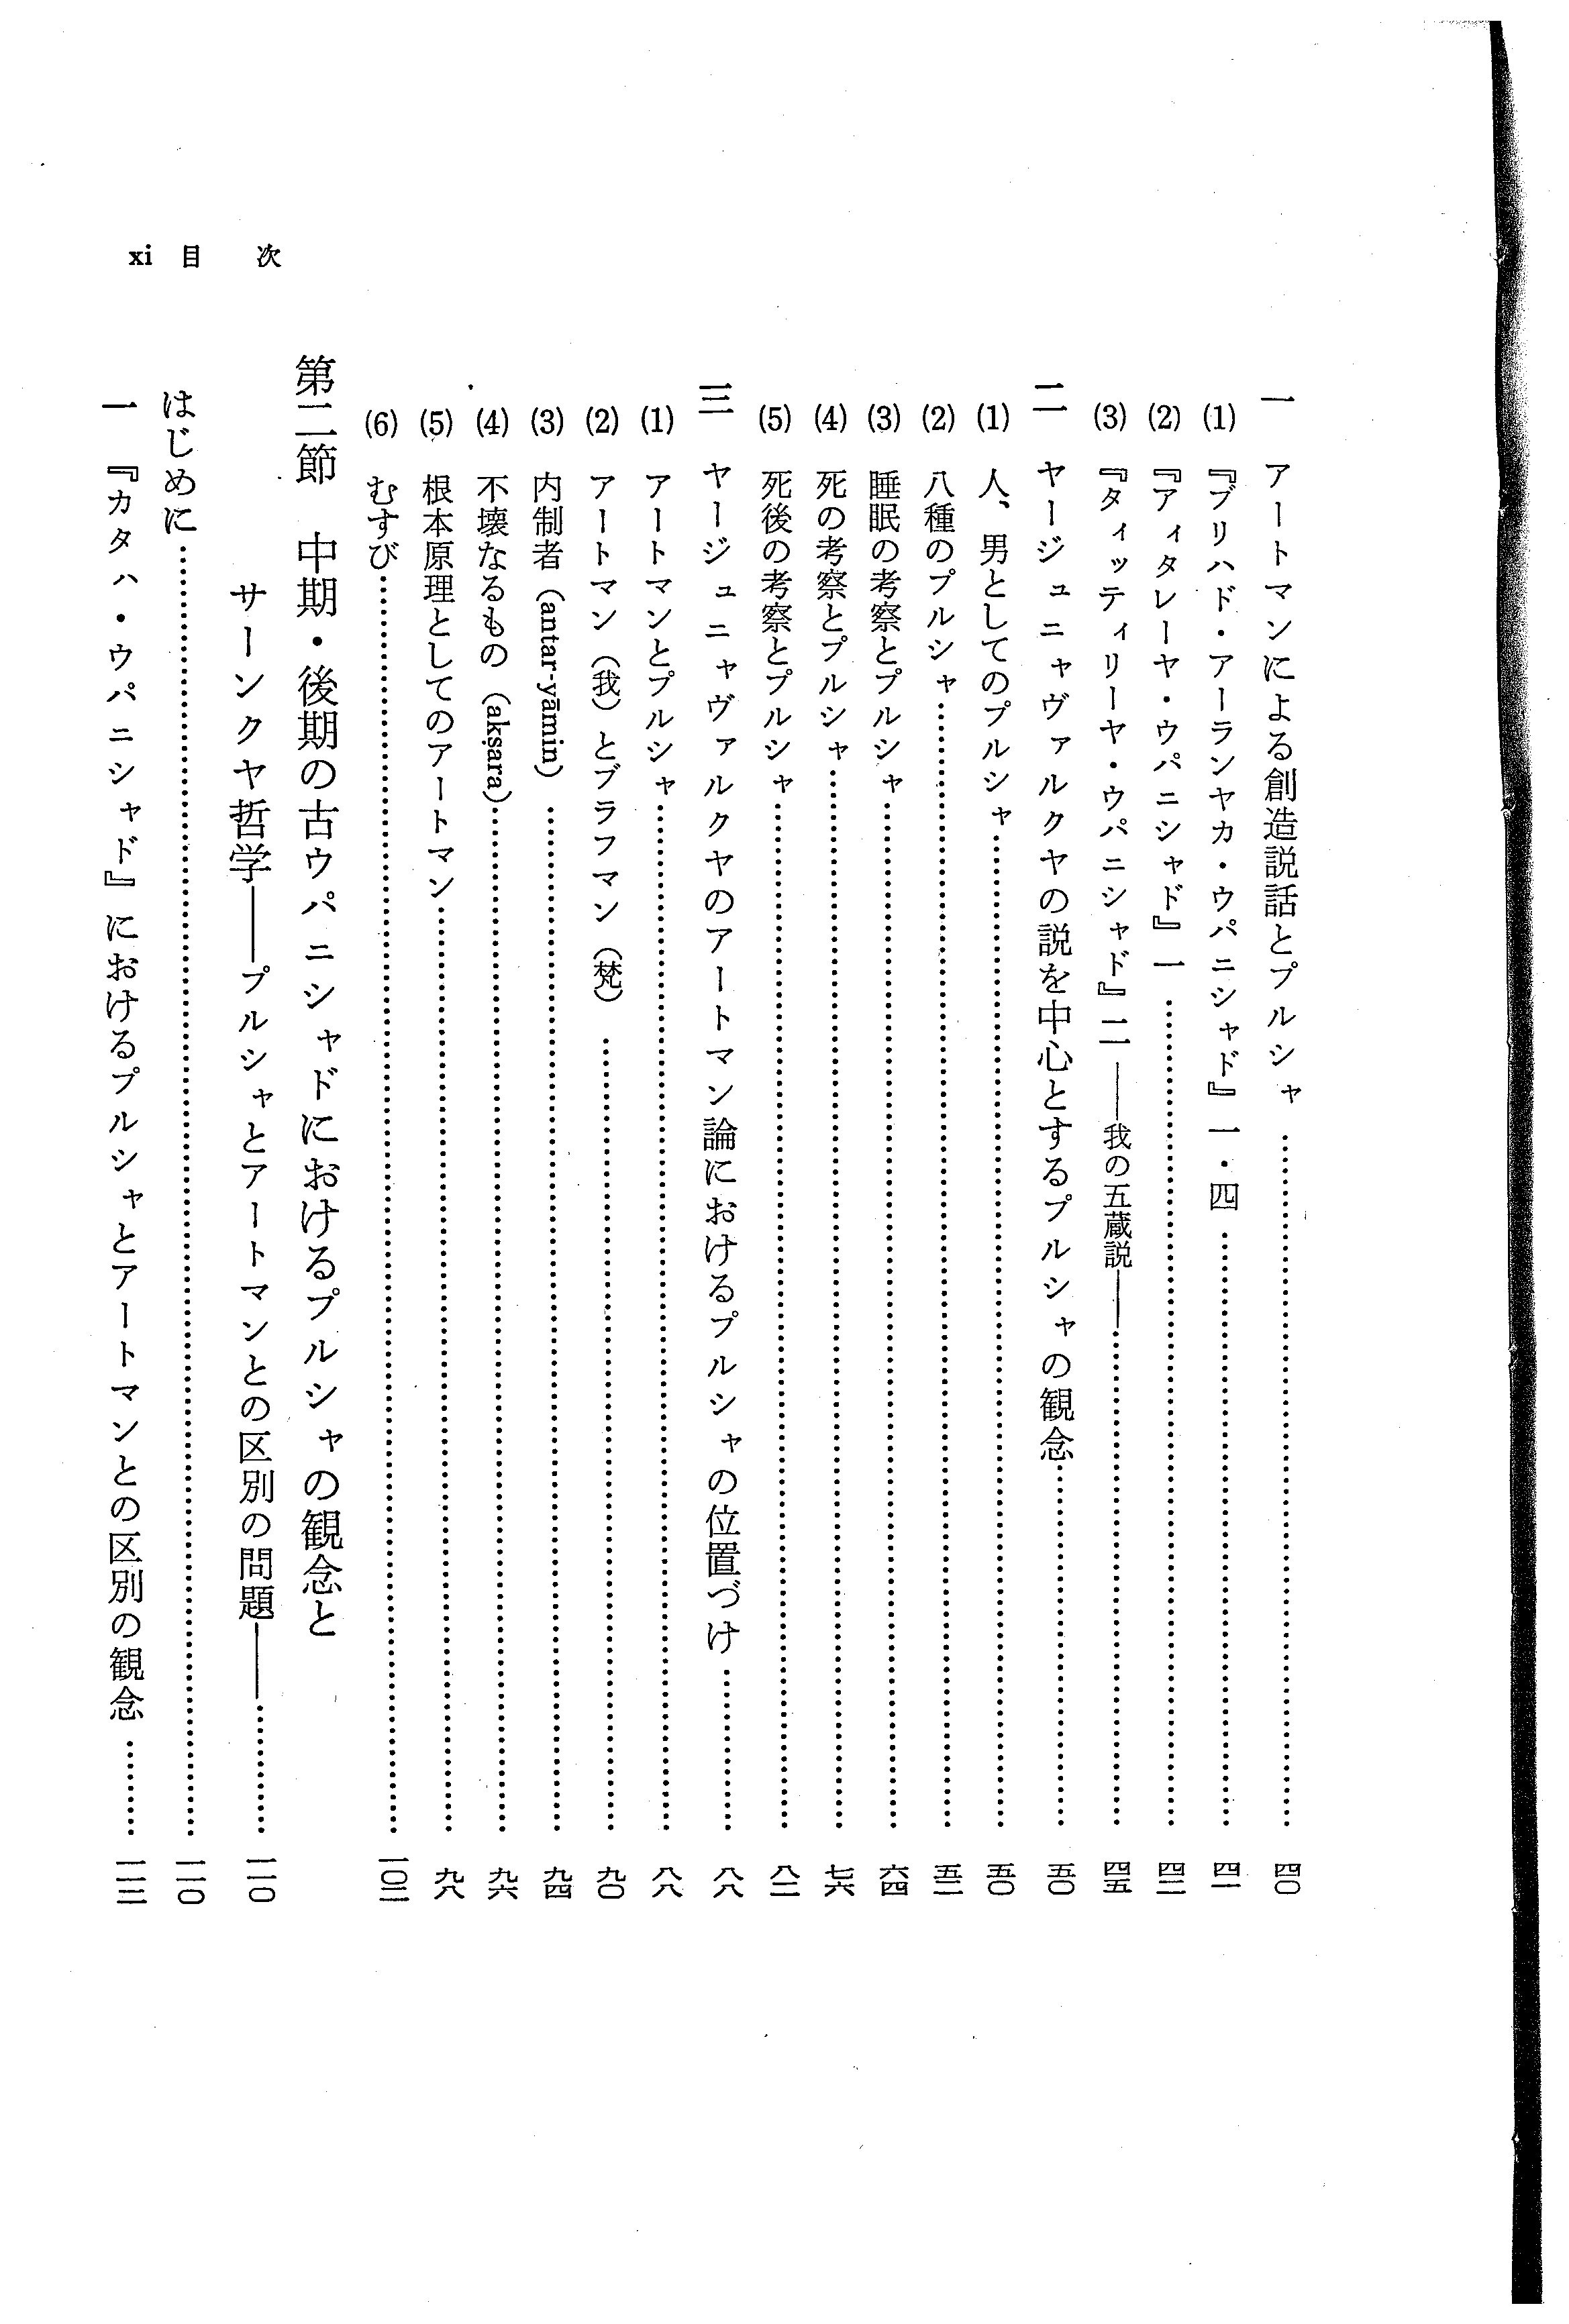 xi 目 次
一 アートマンによる創造説話とプルシャ……四〇
(1) 『ブリハド・アーランヤカ・ウパニシャド』一・四……四一
(2) 『アィタレーヤ・ウパニシャド』一……四三
(3) 『タィッティリーヤ・ウパニシャド』二――我の五蔵説――……四五
二 ヤージュニャヴァルクヤの説を中心とするプルシャの観念……五〇
(1) 人、男としてのプルシャ……五〇
(2) 八種のプルシャ……五三
(3) 睡眠の考察とプルシャ……六四
(4) 死の考察とプルシャ……七六
(5) 死後の考察とプルシャ……八二
三 ヤージュニャヴァルクヤのアートマン論におけるプルシャの位置づけ……八八
(1) アートマンとプルシャ……八八
(2) アートマン（我）とブラフマン（梵）……九〇
(3) 内制者（antar-yāmin）……九四
(4) 不壊なるもの（akṣara）……九六
(5) 根本原理としてのアートマン……九八
(6) むすび……一〇二
第二節 中期・後期の古ウパニシャドにおけるプルシャの観念と
サーンクヤ哲学――プルシャとアートマンとの区別の問題――……一一〇
はじめに……一一〇
一 『カタハ・ウパニシャド』におけるプルシャとアートマンとの区別の観念……一一二